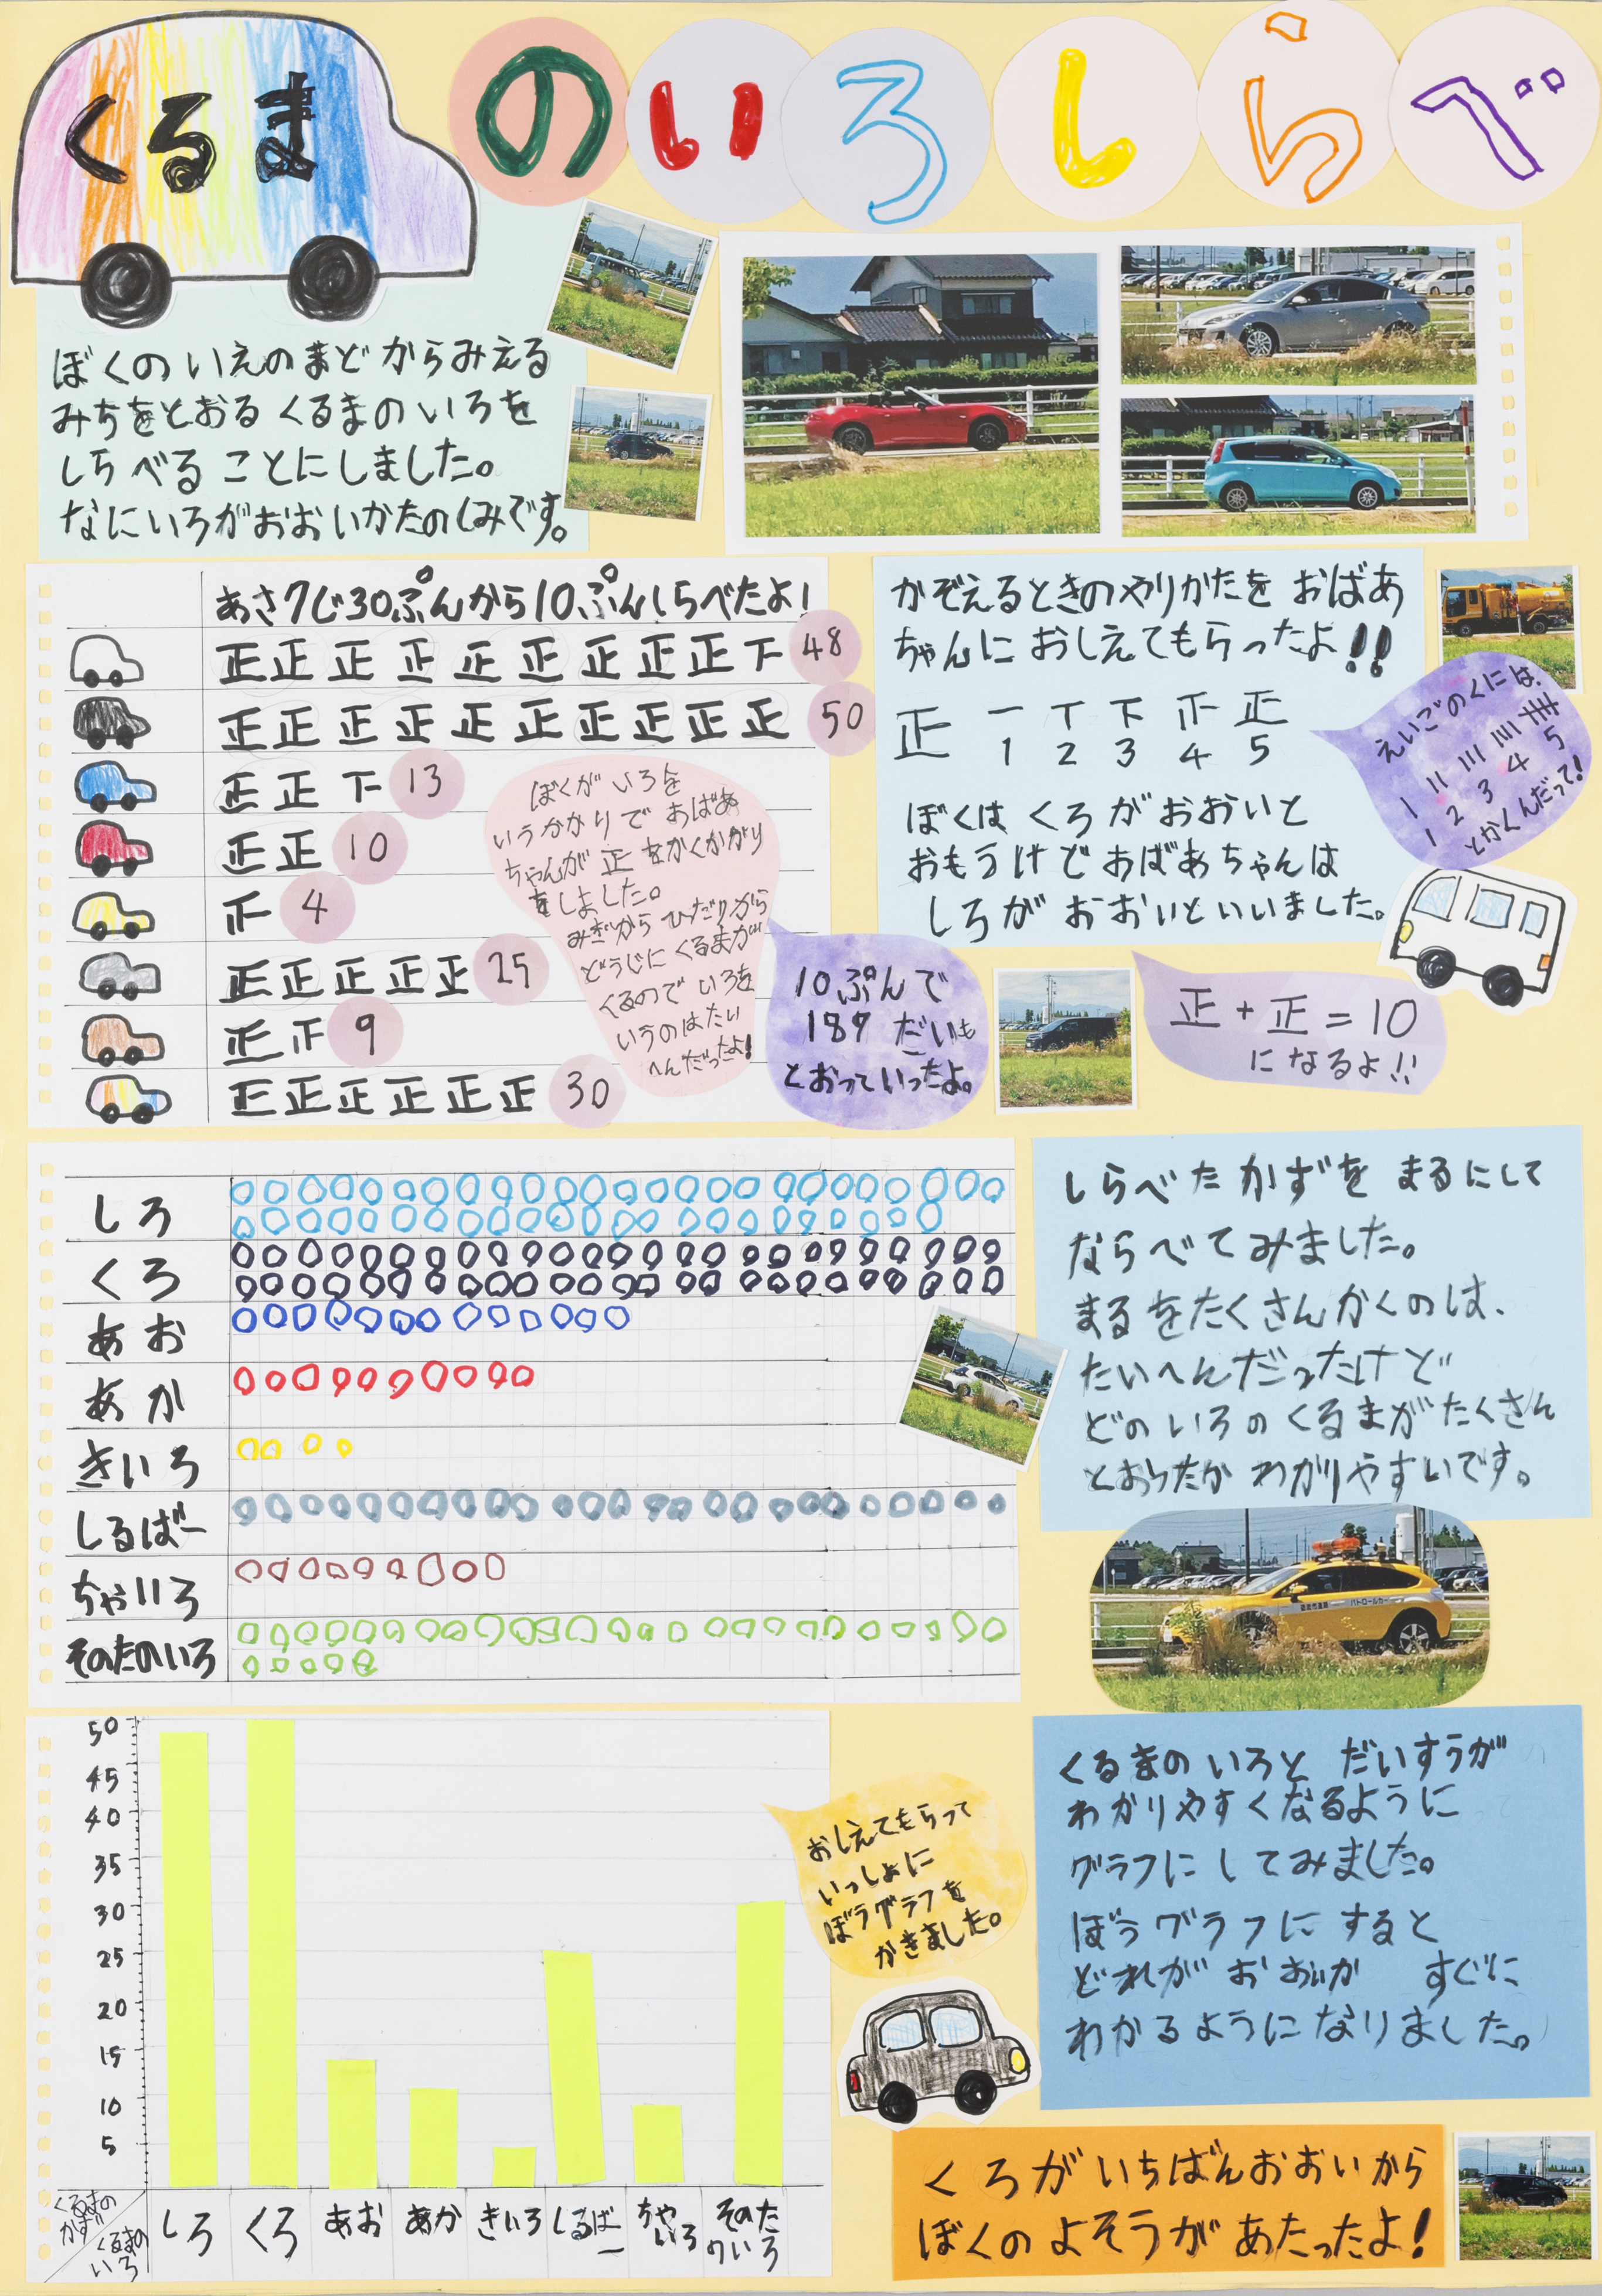 くるまのいろしらべ
ぼくのいえのまどからみえる
みちをとおるくるまのいろを
しらべることにしました。
なにいろがおおいかたのしみです。
あさ7じ30ぷんから10ぷんしらべたよ!
正正正正正正正正正下 48
正正正正正正正正正正 50
正正下 13
正正 10
正 4
正正正正正 25
正正 9
正正正正正正 30
ぼくがいろを
いうかかりでおばあ
ちゃんが正をかくかかり
をしました。
みぎからひだりから
どうじにくるまが
くるのでいろを
いうのはたい
へんだったよ!
10ぷんで
189だいも
とおっていったよ。
かぞえるときのやりかたをおばあ
ちゃんにおしえてもらったよ!!
正 一 丅 下 正 正
1 2 3 4 5
えいごのくには、
1 2 3 4 5
とかくんだって!
ぼくはくろがおおいと
おもうけどおばあちゃんは
しろがおおいといいました。
正+正=10
になるよ!!
しろ
くろ
あお
あか
きいろ
しるばー
ちゃいろ
そのたのいろ
しらべたかずをまるにして
ならべてみました。
まるをたくさんかくのは、
たいへんだったけど
どのいろのくるまがたくさん
とおったかわかりやすいです。
パトロールカー
50
45
40
35
30
25
20
15
10
5
くるまの
かず
くるまの
いろ
しろ くろ あお あか きいろ しるばー ちゃいろ そのたのいろ
おしえてもらって
いっしょに
ぼうグラフを
かきました。
くるまのいろとだいすうが
わかりやすくなるように
グラフにしてみました。
ぼうグラフにすると
どれがおおいか すぐに
わかるようになりました。
くろがいちばんおおいから
ぼくのよそうがあたったよ!